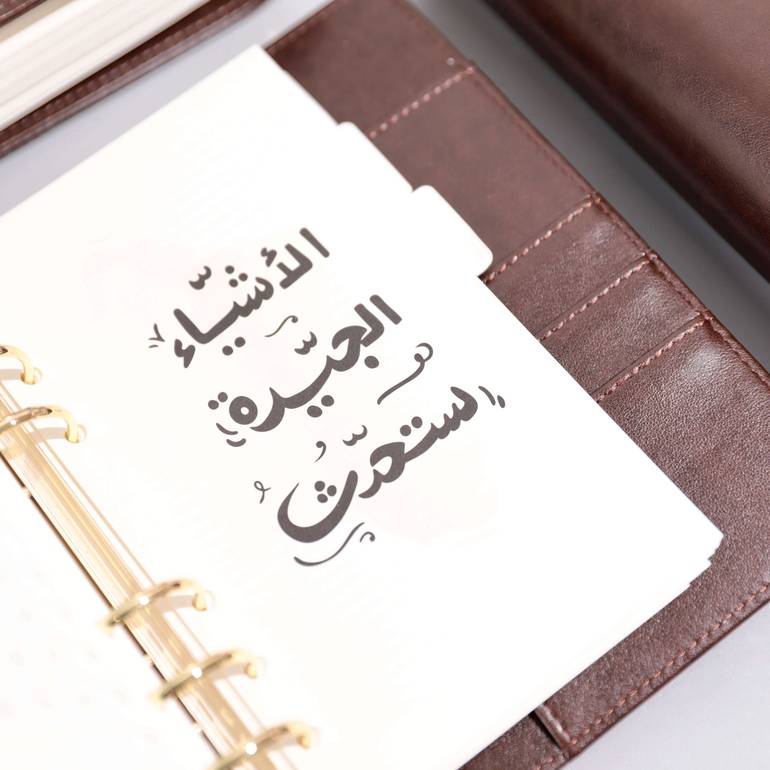 الأشيّاء
الجيّدة
ستحدّث